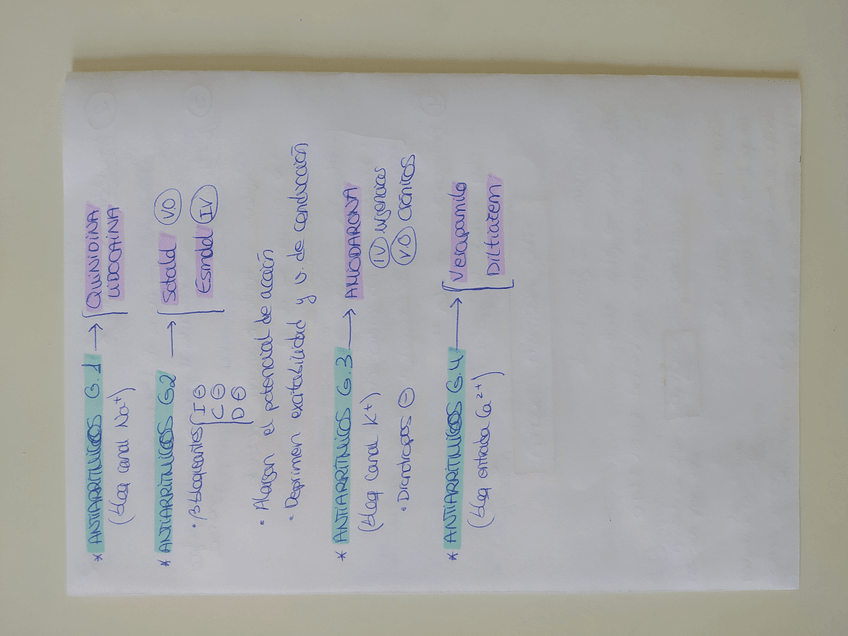 * ANTIARRITMICOS G.1 → [ QUINIDINA
(bloq canal Na+) LIDOCAINA
* ANTIARRITMICOS G2 → [ Sotalol (V.O)
Esmolol (IV)
• β bloqueantes [ I ⊖
C ⊖
D ⊖
• Alargan el potencial de acción
• Deprimen exitabilidad y v. de conducción
* ANTIARRITMICOS G.3 → AMIODARONA
(bloq canal K+) (IV) urgencias
(V.O) Crónicos
• Dromotropos ⊖
* ANTIARRITMICOS G.4 → [ Verapamilo
(bloq entrada Ca2+) Diltiazem